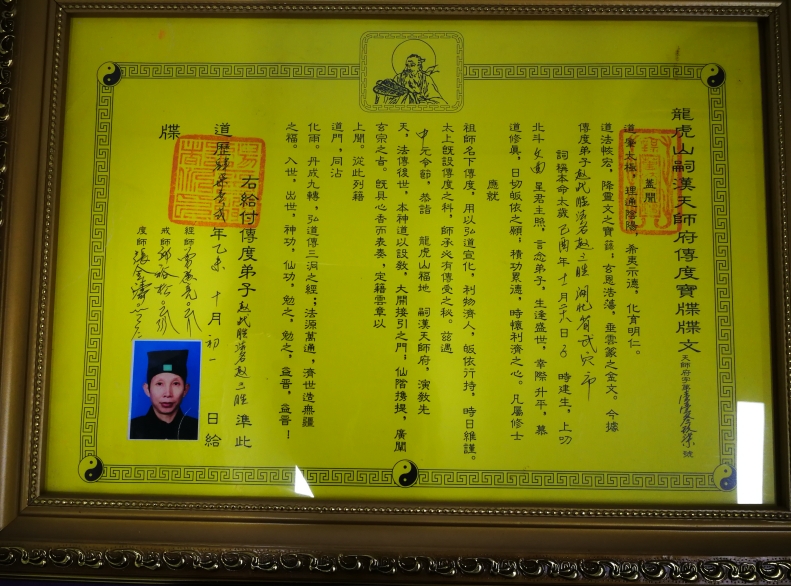 龍虎山嗣漢天師府傳度寶牒牒文 天師府字第 號
蓋聞
道肇太極，理通陰陽，希夷示德，化育明仁。
道法恢宏，降靈文之寶籙；玄恩浩蕩，垂雲篆之金文。今據
傳度弟子赵武勝 法名赵三勝 湖北省武穴市
詞稱本命太歲己酉年十一月二十八日子時建生，上叨
北斗文曲星君主照，言念弟子，生逢盛世，幸際升平，慕
道修真，日切皈依之願；積功累德，時懷利濟之心。凡屬修士
應就
祖師名下傳度，用以弘道宣化，利物濟人，皈依行持，時日維謹。
太上既設傳度之科，師承必有傳受之秘。茲遇
中元令節，恭詣 龍虎山福地 嗣漢天師府，演教先
天，法傳後世，本神道以設教，大開接引之門，仙階携提，廣闡
玄宗之旨。既具心香而表奏，定籍雲章以
上聞。從此列籍
道門，同沾
化雨。丹成九轉，弘道傳三洞之經；法源萬通，濟世造無疆
之福。入世，出世，神功，仙功，勉之，勉之，益晉，益晉！
右給付傳度弟子赵武勝 法名赵三勝 準此
道歷 年乙未 十月初一 日給
經師
戒師
度師 張金濤
牒